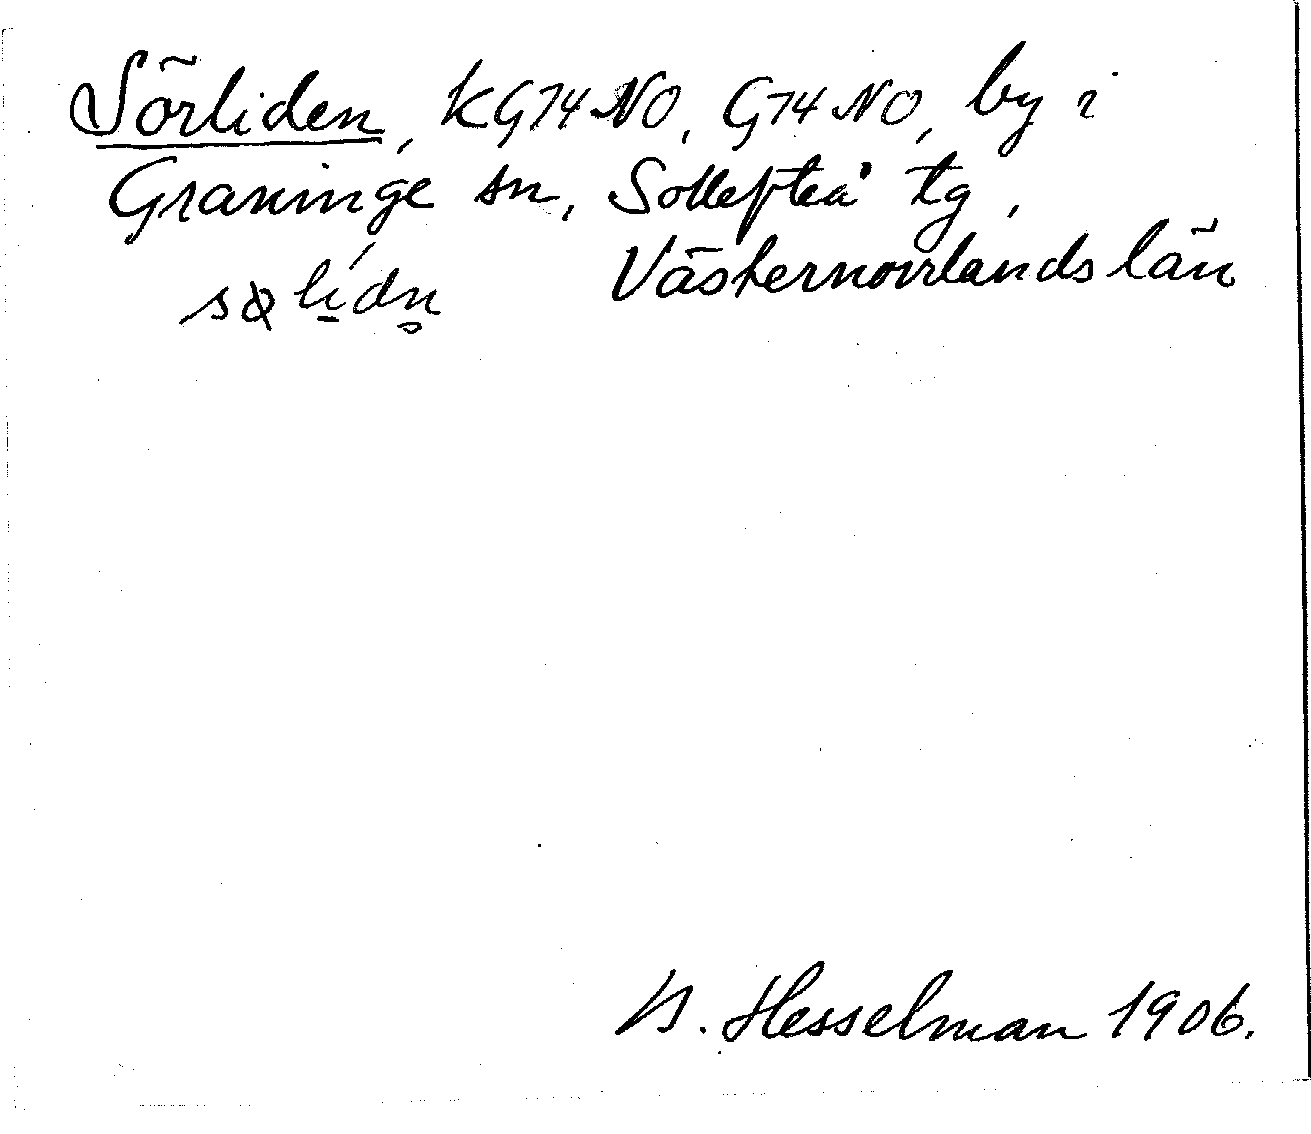 Sörliden, KG74NO, G74NO, by i
Graninge sn, Sollefteå tg,
Västernorrlands län
B. Hesselman 1906.